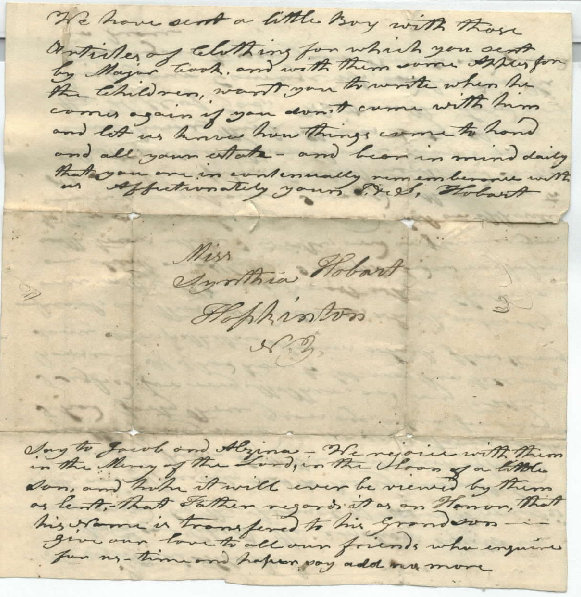 We have sent a little Box with those
Articles of Clothing for which you sent
by Major Cook, and with them some Apples for
the Children, want you to write when he
comes again if you don't come with him
and let us know how things come to hand
and all your state - and bear in mind daily
that you are in continually rememberance with
us Affectionately yours S. & S. Hobart
Miss
Synthia Hobart
Hopkinton
N Y
Say to Jacob and Alzina - We rejoice with them
in the Mercy of the Lord, in the Loan of a little
Son, and hope it will ever be viewed by them
as lent, that Father regards it as an Honor, that
his Name is transfered to his Grandson
give our love to all our friends who enquire
for us - time and paper say add no more